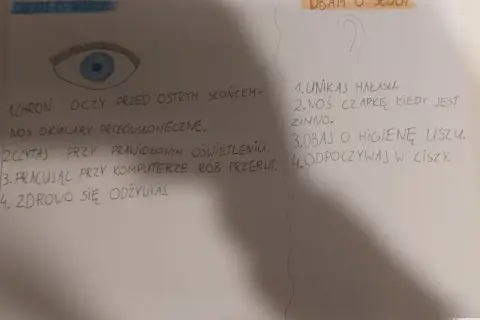 1. CHROŃ OCZY PRZED OSTRYM SŁOŃCEM-
NOŚ OKULARY PRZECIWSŁONECZNE.
2. CZYTAJ PRZY PRAWIDŁOWYM OŚWIETLENIU.
3. PRACUJĄC PRZY KOMPUTERZE RÓB PRZERWY.
4. ZDROWO SIĘ ODŻYWIAJ
DBAM O SŁUCH
1. UNIKAJ HAŁASU.
2. NOŚ CZAPKĘ KIEDY JEST
ZIMNO.
3. DBAJ O HIGIENĘ USZU.
4. ODPOCZYWAJ W CISZY.